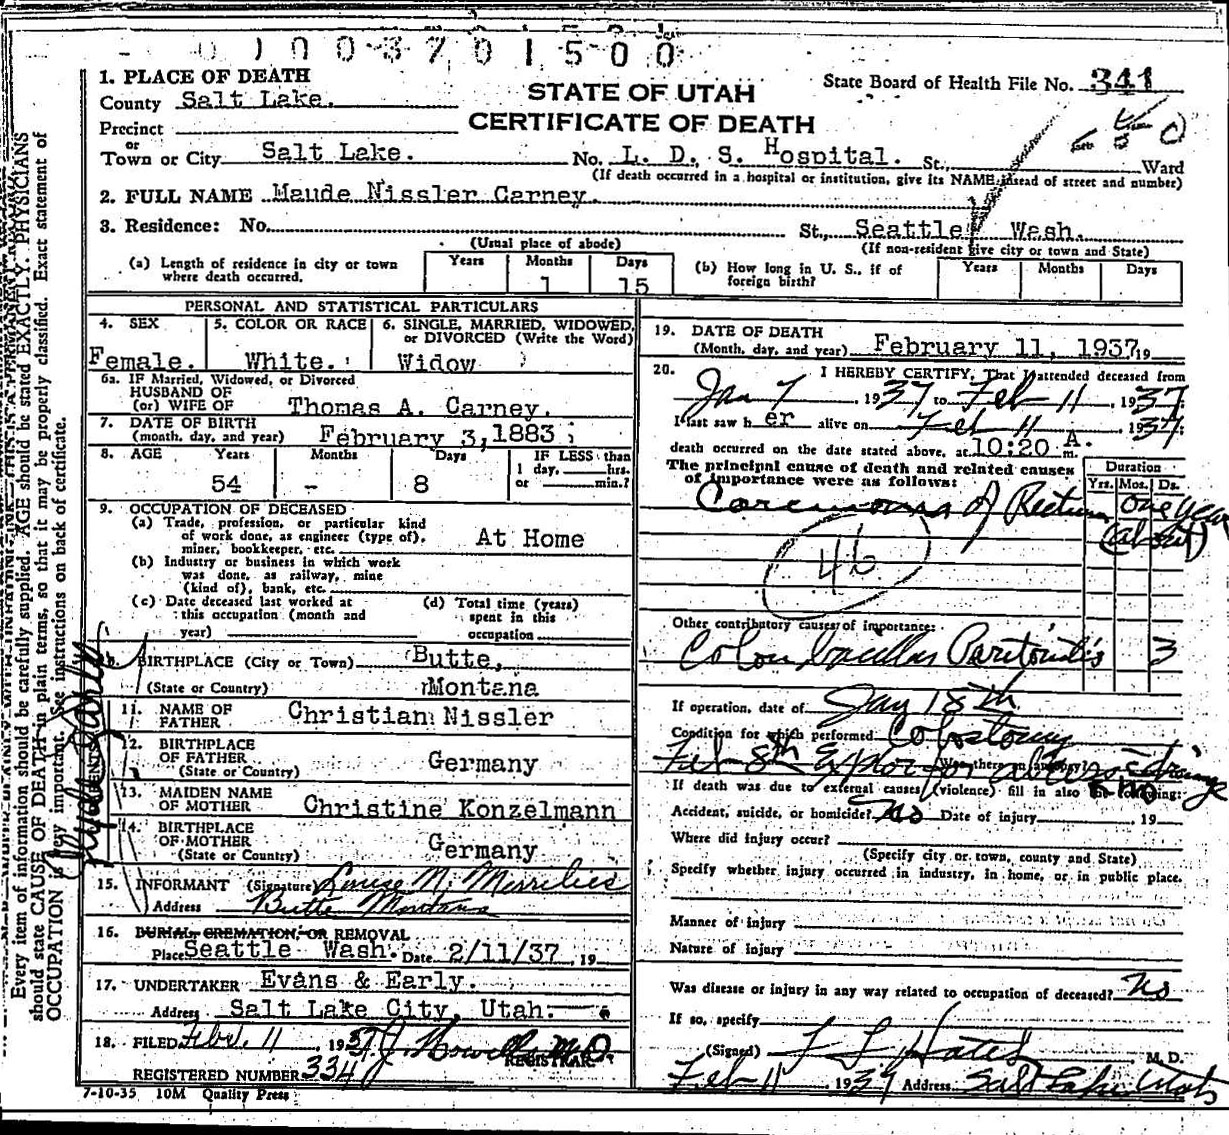 0 1 0 0 3 7 0 1 5 0 0
1. PLACE OF DEATH
County Salt Lake.
STATE OF UTAH
CERTIFICATE OF DEATH
State Board of Health File No. 341
Precinct
or
Town or City Salt Lake. No. L. D. S. Hospital. St., Ward
(If death occurred in a hospital or institution, give its NAME instead of street and number)
2. FULL NAME Maude Nissler Carney.
3. Residence: No. St., Seattle, Wash.
(Usual place of abode) (If non-resident give city or town and State)
(a) Length of residence in city or town where death occurred. Years Months 1 Days 15
(b) How long in U. S., if of foreign birth? Years Months Days
PERSONAL AND STATISTICAL PARTICULARS
4. SEX Female.
5. COLOR OR RACE White.
6. SINGLE, MARRIED, WIDOWED, or DIVORCED (Write the Word) Widow
6a. IF Married, Widowed, or Divorced
HUSBAND OF
(or) WIFE OF Thomas A. Carney.
7. DATE OF BIRTH
(month, day, and year) February 3, 1883
8. AGE Years 54 Months - Days 8 IF LESS than 1 day, hrs. or min.?
9. OCCUPATION OF DECEASED
(a) Trade, profession, or particular kind of work done, as engineer (type of), miner, bookkeeper, etc. At Home
(b) Industry or business in which work was done, as railway, mine (kind of), bank, etc.
(c) Date deceased last worked at this occupation (month and year)
(d) Total time (years) spent in this occupation
BIRTHPLACE (City or Town) Butte,
(State or Country) Montana
11. NAME OF FATHER Christian Nissler
12. BIRTHPLACE OF FATHER
(State or Country) Germany
13. MAIDEN NAME OF MOTHER Christine Konzelmann
14. BIRTHPLACE OF MOTHER
(State or Country) Germany
15. INFORMANT (Signature) Louise N. Merrilies
Address Butte Montana
16. BURIAL, CREMATION, OR REMOVAL
Place Seattle Wash. Date 2/11/37, 19
17. UNDERTAKER Evans & Early.
Address Salt Lake City, Utah.
18. FILED Feb. 11, 1937
REGISTRAR.
REGISTERED NUMBER 334
7-10-35 10M Quality Press
19. DATE OF DEATH
(Month, day, and year) February 11, 1937 19
20. I HEREBY CERTIFY, That I attended deceased from
Jan 7, 1937 to Feb 11, 1937.
I last saw h er alive on Feb 11, 1937.
death occurred on the date stated above, at 10:20 A. m.
The principal cause of death and related causes of importance were as follows:
Duration
Yrs. Mos. Ds.
Carcinoma of Rectum one year
(about)
46
Other contributory causes of importance:
Colon bacillus Peritonitis 3
If operation, date of Jan 18th
Condition for which performed Colostomy
Feb 8th Explor for abscess drainage
Was there an autopsy? no
If death was due to external causes (violence) fill in also the following:
Accident, suicide, or homicide? No Date of injury 19
Where did injury occur?
(Specify city or town, county and State)
Specify whether injury occurred in industry, in home, or in public place.
Manner of injury
Nature of injury
Was disease or injury in any way related to occupation of deceased? No
If so, specify
(Signed) F L Hatch M. D.
Feb 11, 1937 Address Salt Lake Utah
Every item of information should be carefully supplied. AGE should be stated EXACTLY. PHYSICIANS
should state CAUSE OF DEATH in plain terms, so that it may be properly classified. Exact statement of
OCCUPATION is very important. See instructions on back of certificate.